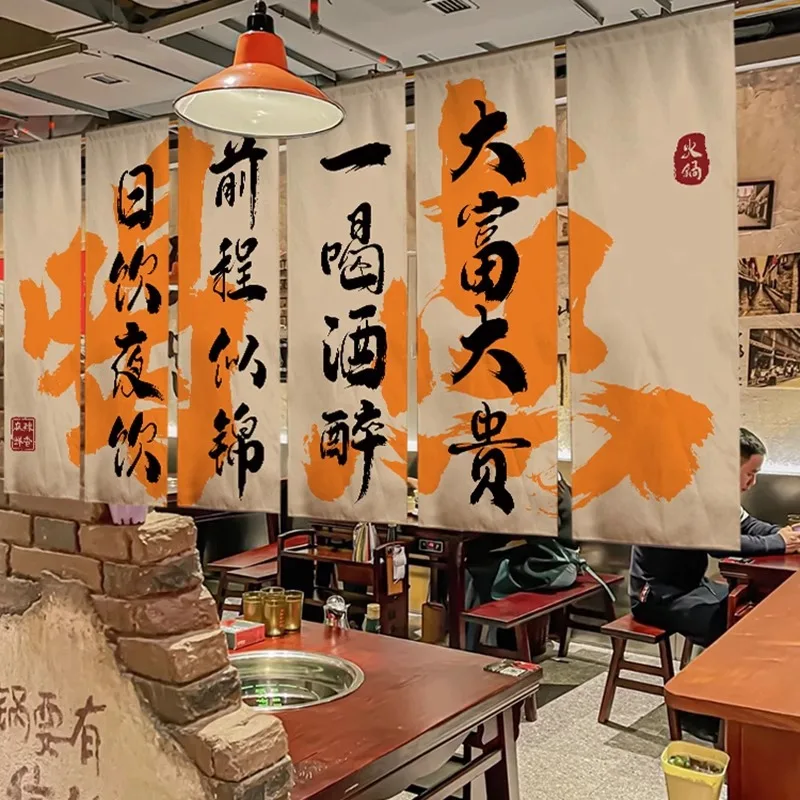 火鍋
大富大贵
一喝酒醉
前程似锦
日饮夜饮
有
要
锅